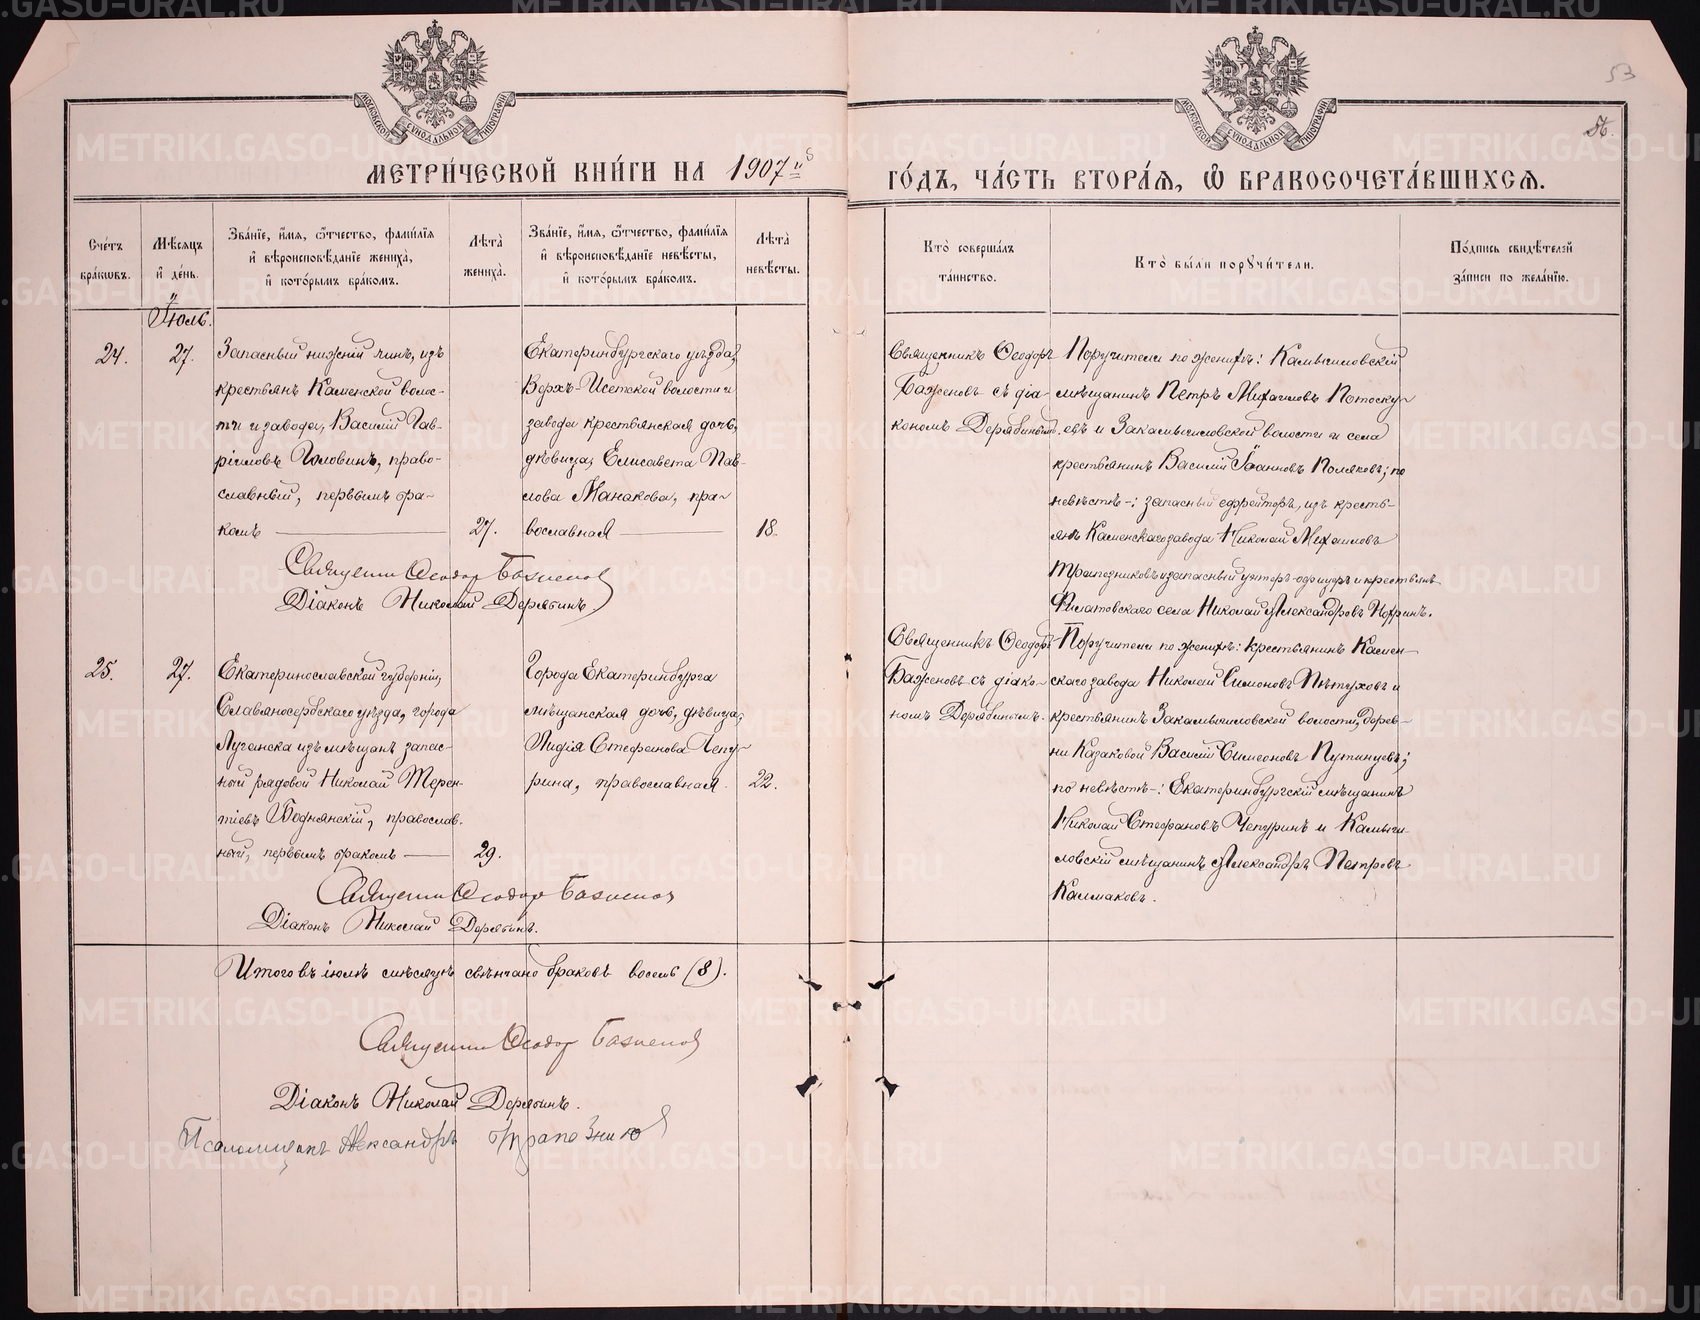 53
56.
МОСКОВСКОЙ СѴНОДАЛЬНОЙ ТИПОГРАФІИ
МОСКОВСКОЙ СѴНОДАЛЬНОЙ ТИПОГРАФІИ
МЕТРИ́ЧЕСКОЙ КНИ́ГИ НА 1907й
ГО́ДЪ, ЧА́СТЬ ВТОРА́Я, Ѡ БРАКОСОЧЕТА́ВШИХСЯ.
Сче́тъ
бра́ковъ.
Мѣ́сяцъ
и҆ де́нь.
Зва́нїе, и҆́мя, ѻ҆́тчество, фами́лїя
и҆ вѣроисповѣ́данїе жениха̀,
и҆ кото́рымъ бра́комъ.
Лѣ́та
жениха̀.
Зва́нїе, и҆́мя, ѻ҆́тчество, фами́лїя
и҆ вѣроисповѣ́данїе невѣ́сты,
и҆ кото́рымъ бра́комъ.
Лѣ́та
невѣ́сты.
Кто̀ соверша́лъ
та́инство.
Кто̀ бы́ли поручи́тели.
По́дпись свидѣ́телей
за́писи по жела́нїю.
Іюль.
24.
27.
Запасный нижній чинъ, изъ
крестьянъ Каменской волос-
ти и завода, Василій Гав-
ріиловъ Головинъ, право-
славный, первымъ бра-
комъ
27.
Екатеринбургскаго уѣзда,
Верхъ-Исетской волости и
завода крестьянская дочь,
дѣвица, Елисавета Пав-
лова Манакова, пра-
вославная
18.
Священникъ Ѳеодоръ
Баженовъ съ діа-
кономъ Дерябинымъ.
Поручители по женихѣ: Камышловскій
мѣщанинъ Петръ Михаиловъ Потоску-
евъ и Закамышловской волости и села
крестьянинъ Василій Іоанновъ Поляковъ; по
невѣстѣ: запасный ефрейторъ, изъ кресть-
янъ Каменскаго завода Николай Михаиловъ
Трапезниковъ и запасный унтеръ-офицеръ и крестьянъ
Филатовскаго села Николай Александровъ
Священникъ Ѳеодоръ Баженовъ
Діаконъ Николай Дерябинъ
25.
27.
Екатеринославской губерніи,
Славяносербскаго уѣзда, города
Луганска изъ мѣщанъ запас-
ной рядовой Николай Терен-
тіевъ Боднянскій, православ-
ный, первымъ бракомъ
29.
Города Екатеринбурга
мѣщанская дочь, дѣвица,
Лидія Стефанова Чепу-
рина, православная
22.
Священникъ Ѳеодоръ
Баженовъ съ діако-
номъ Дерябинымъ.
Поручители по женихѣ: крестьянинъ Камен-
скаго завода Николай Симоновъ Пѣтуховъ и
крестьянинъ Закамышловской волости, дерев-
ни Казаковой Василій Симеоновъ Путинцевъ;
по невѣстѣ: Екатеринбургскій мѣщанинъ
Николай Стефановъ Чепуринъ и Камыш-
ловскій мѣщанинъ Александръ Петровъ
Калмаковъ.
Священникъ Ѳеодоръ Баженовъ
Діаконъ Николай Дерябинъ.
Итого въ іюлѣ мѣсяцѣ свѣнчано браковъ восемь (8).
Священникъ Ѳеодоръ Баженовъ
Діаконъ Николай Дерябинъ.
Псаломщикъ Александръ Трапезников
METRIKI.GASO-URAL.RU